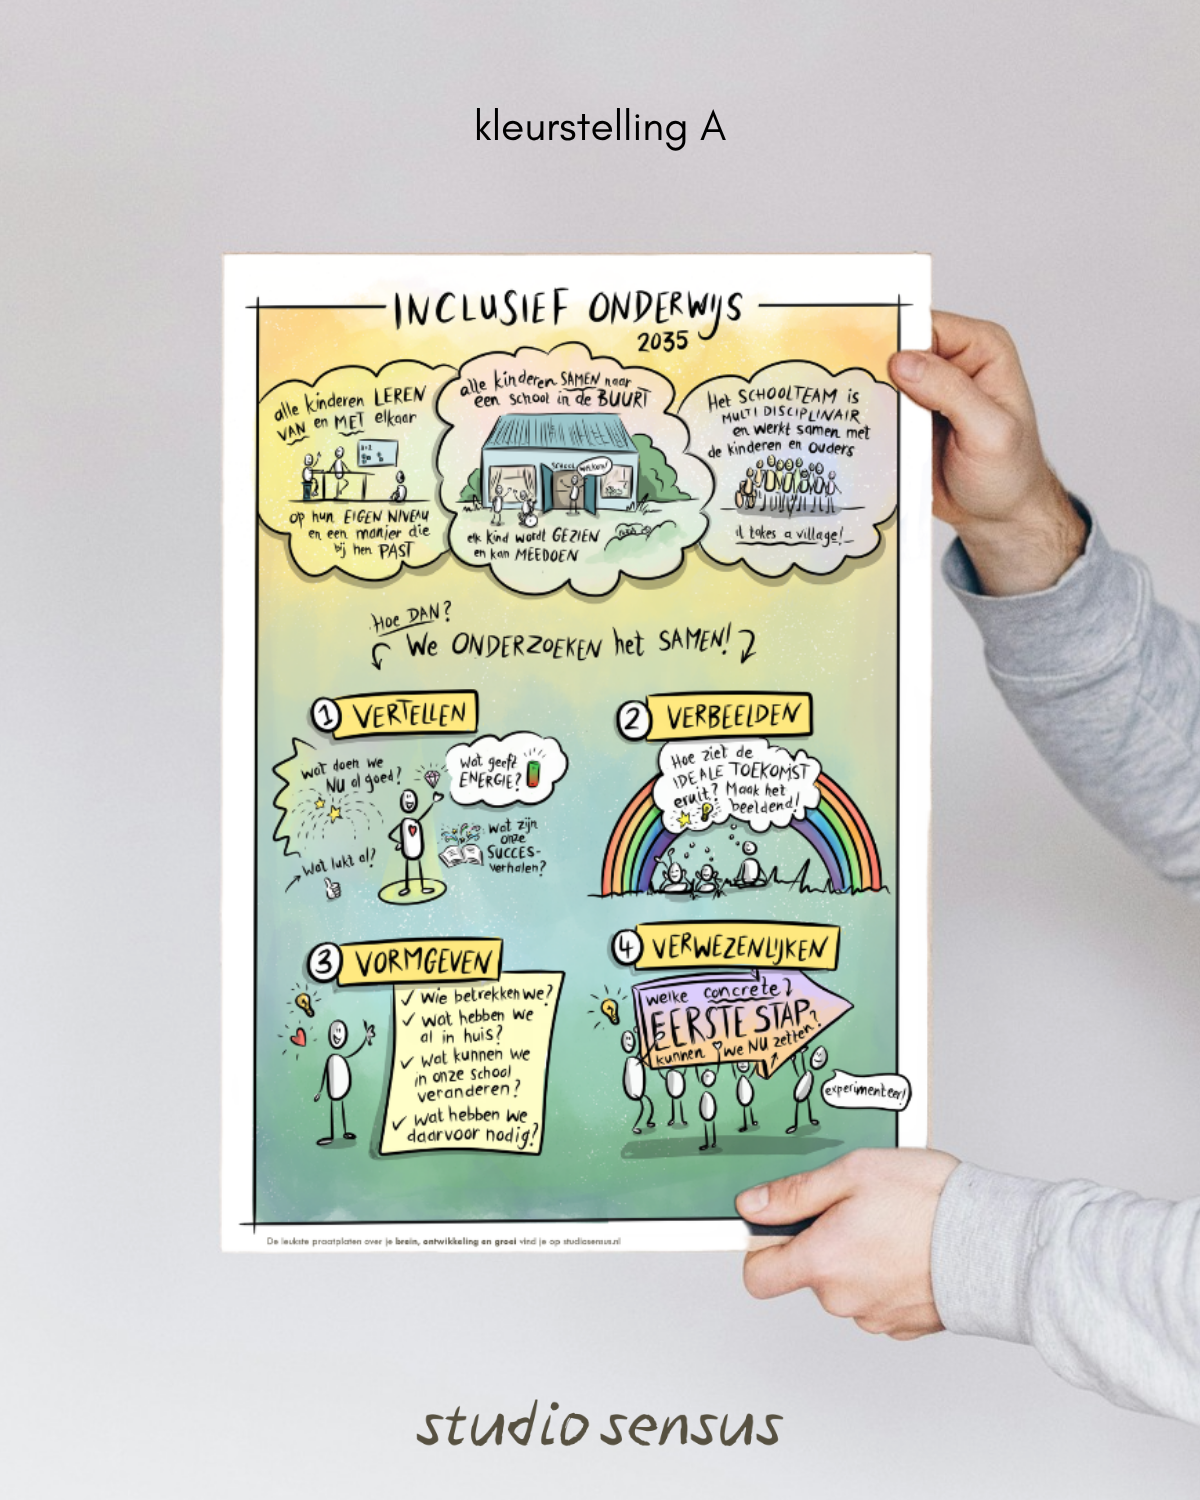 kleurstelling A
INCLUSIEF ONDERWIJS
2035
alle kinderen LEREN
VAN en MET elkaar
op hun EIGEN NIVEAU
en een manier die
bij hen PAST
alle kinderen SAMEN naar
een school in de BUURT
SCHOOL
welkom!
elk kind wordt GEZIEN
en kan MEEDOEN
Het SCHOOLTEAM is
MULTI DISCIPLINAIR
en werkt samen met
de kinderen en ouders
it takes a village!
Hoe DAN?
We ONDERZOEKEN het SAMEN!
1 VERTELLEN
wat doen we
NU al goed?
Wat geeft
ENERGIE?
wat zijn
onze
SUCCES-
verhalen?
Wat lukt al?
2 VERBEELDEN
Hoe ziet de
IDEALE TOEKOMST
eruit? Maak het
beeldend!
3 VORMGEVEN
✓ Wie betrekken we?
✓ Wat hebben we
al in huis?
✓ Wat kunnen we
in onze school
veranderen?
✓ Wat hebben we
daarvoor nodig?
4 VERWEZENLIJKEN
welke concrete
EERSTE STAP
kunnen we NU zetten?
experimenteer!
De leukste praatplaten over je brein, ontwikkeling en groei vind je op studiosensus.nl
studio sensus